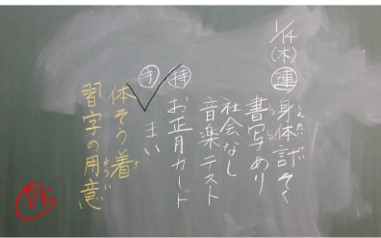 1/14(木)
㊞連 身体計そく
しんたい
書写あり
社会なし
音楽テスト
持 お正月カード
手 まい
体そう着
ぎ
習字の用意
ようい
OK